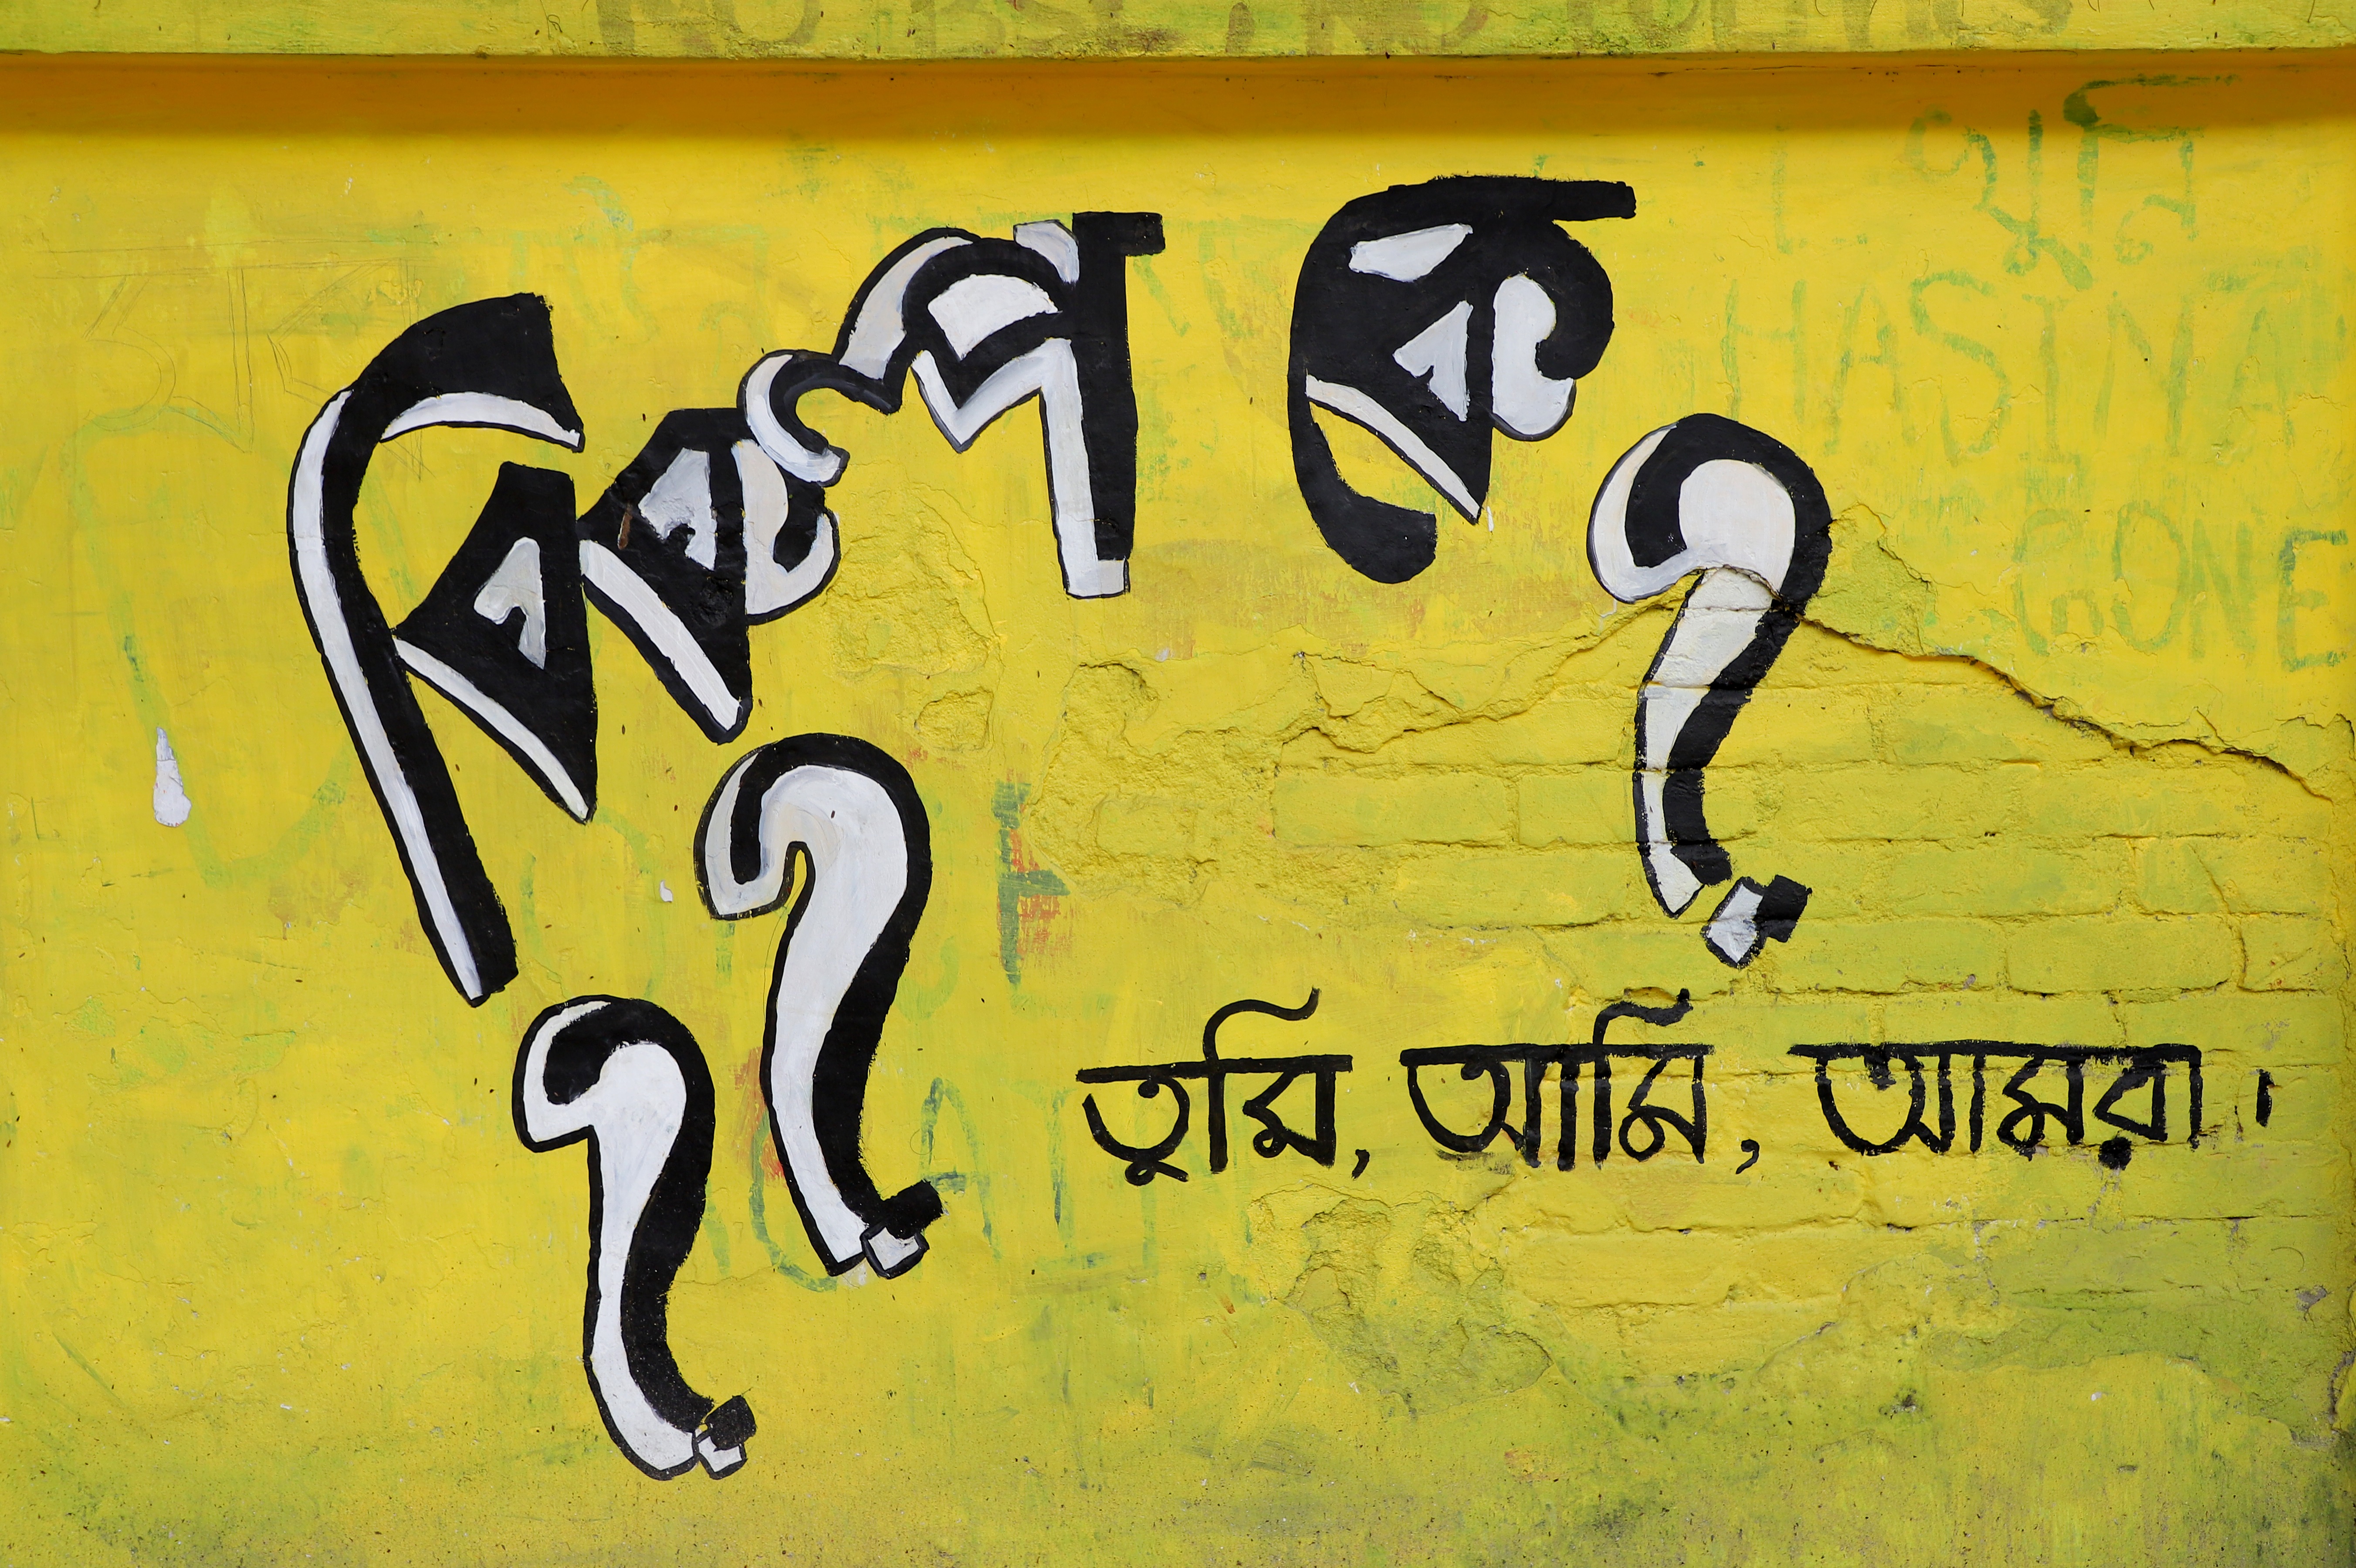 বিকল্প কে ???
তুমি, আমি, আমরা।
খুনি
HASINA
GONE